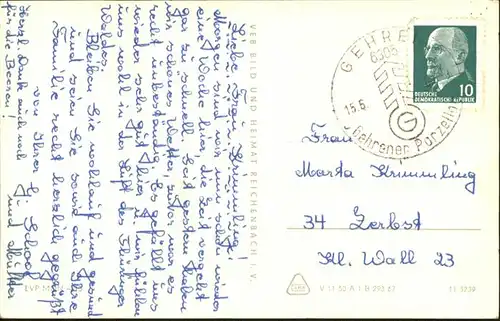 Liebe Frau Krimmling!
Morgen sind wir nun schon wieder
eine Woche hier, die Zeit vergeht
gar zu schnell. Seit gestern haben
wir schönes Wetter, zuvor war es
recht unbeständig. Es gefällt uns
wieder sehr gut hier u. wir fühlen
uns wohl in der Luft des Thüringer
Waldes.
Bleiben Sie wohlauf und gesund
und seien Sie sowie auch Ihre
Familie recht herzlich gegrüßt
von Ihrer
und Mutter
Herzl. Dank auch noch
für die Beeren!
VEB BILD UND HEIMAT REICHENBACH I. V.
GEHREN
6306
15.6.
Gehrener Porzellan
10
DEUTSCHE
DEMOKRATISCHE REPUBLIK
Frau
Marta Krimmling
34 Zerbst
Kl. Wall 23
EVP
V 11 50 A 1 B 293/67